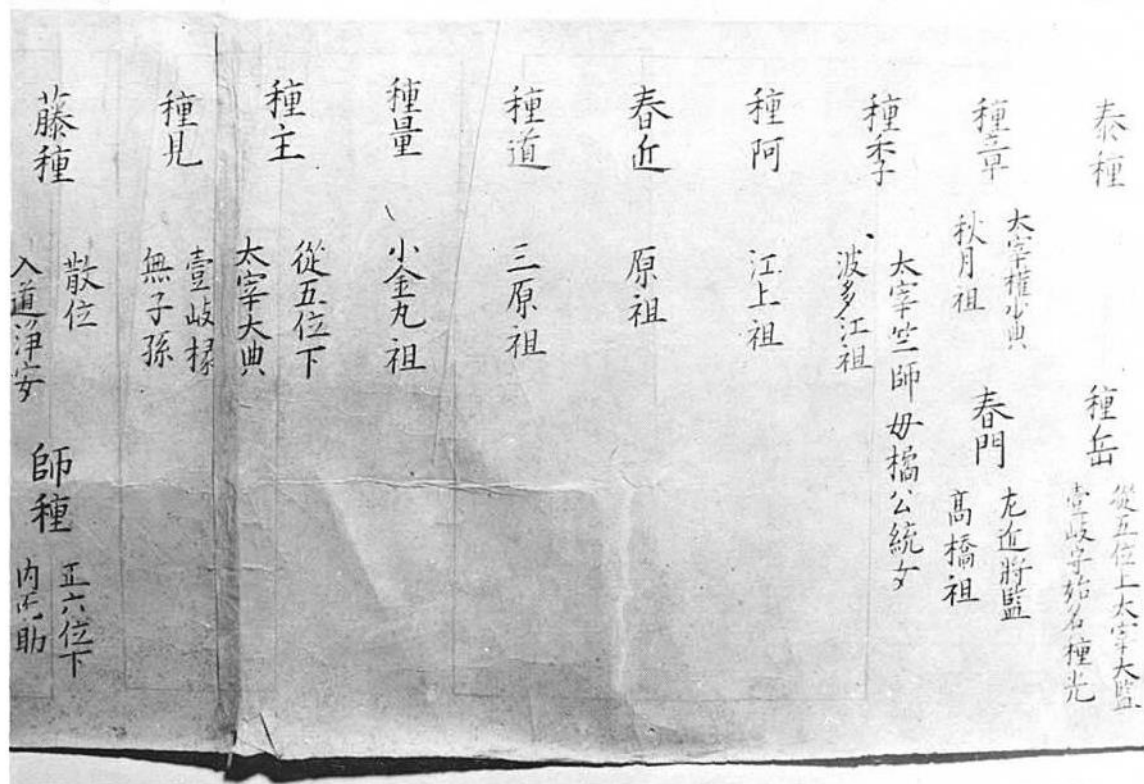 泰種
種岳
從五位上太宰大監
壹岐守始名種光
種章
太宰權少典
秋月祖
春門
左近將監
高橋祖
種季
太宰竺師母橘公統女
波多江祖
種阿
江上祖
春近
原祖
種道
三原祖
種量
小金丸祖
種主
從五位下
太宰大典
種見
壹岐掾
無子孫
藤種
散位
入道淨安
師種
正六位下
内匠助